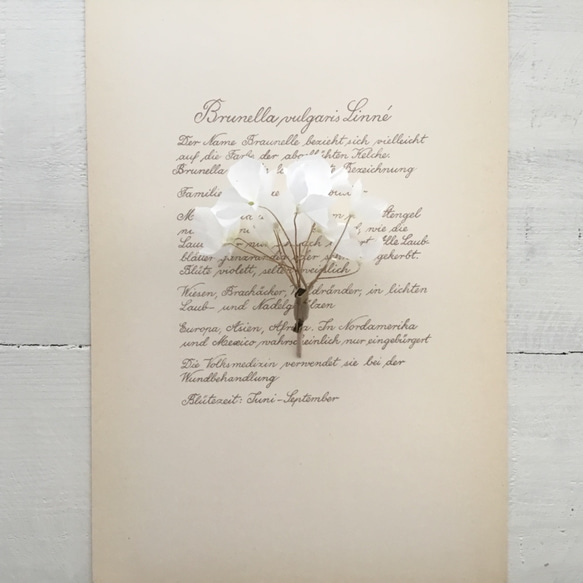 Brunella vulgaris Linné
Der Name Braunelle bezieht sich vielleicht
auf die Farbe der abgeblühten Kelche.
Brunella Bezeichnung
Familie
Stengel
wie die
Laub-
blätter gekerbt.
Blüte violett, selten weisslich
Wiesen, Brachäcker, in lichten
Laub- und Nadelgehölzen
Europa, Asien, Afrika. In Nordamerika
und Mexico wahrscheinlich nur eingebürgert
Die Volksmedizin verwendet sie bei der
Wundbehandlung
Blütezeit: Juni-September